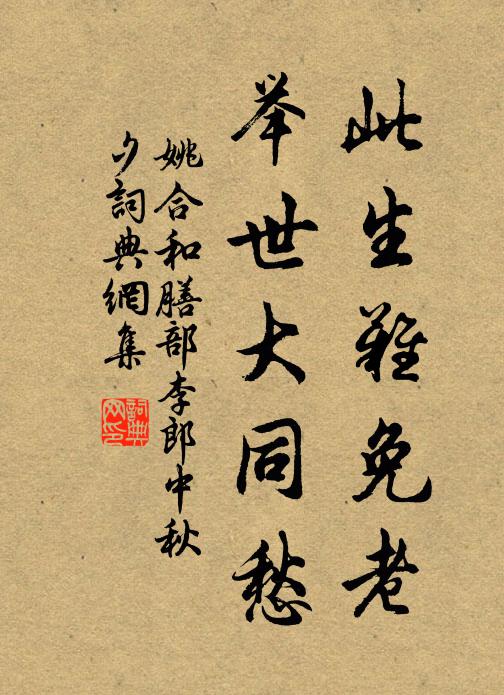 此生難免老
举世大同愁
姚合和膳部李郎中秋
夕詞典網集
詞典网印